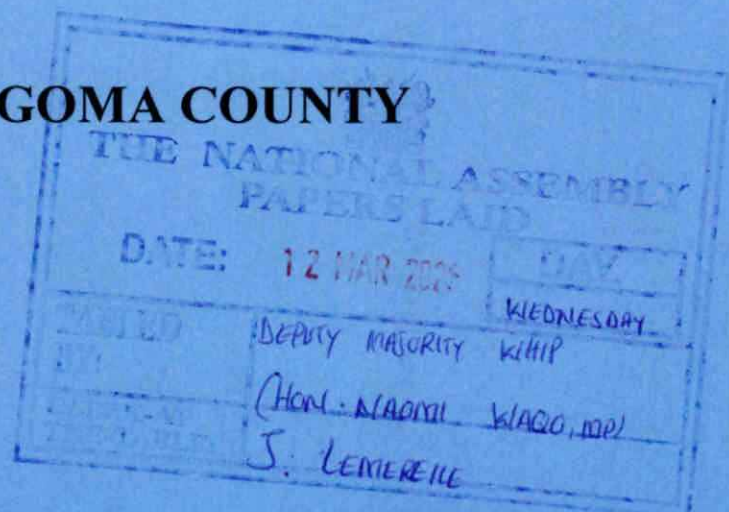 GOMA COUNTY
THE NATIONAL ASSEMBLY
PAPERS LAID
DATE: 12 MAR DAY
WEDNESDAY
TABLED DEPUTY MAJORITY WHIP
BY:
(HON. NAOMI WAQO, MP)
J. LEMEREILE